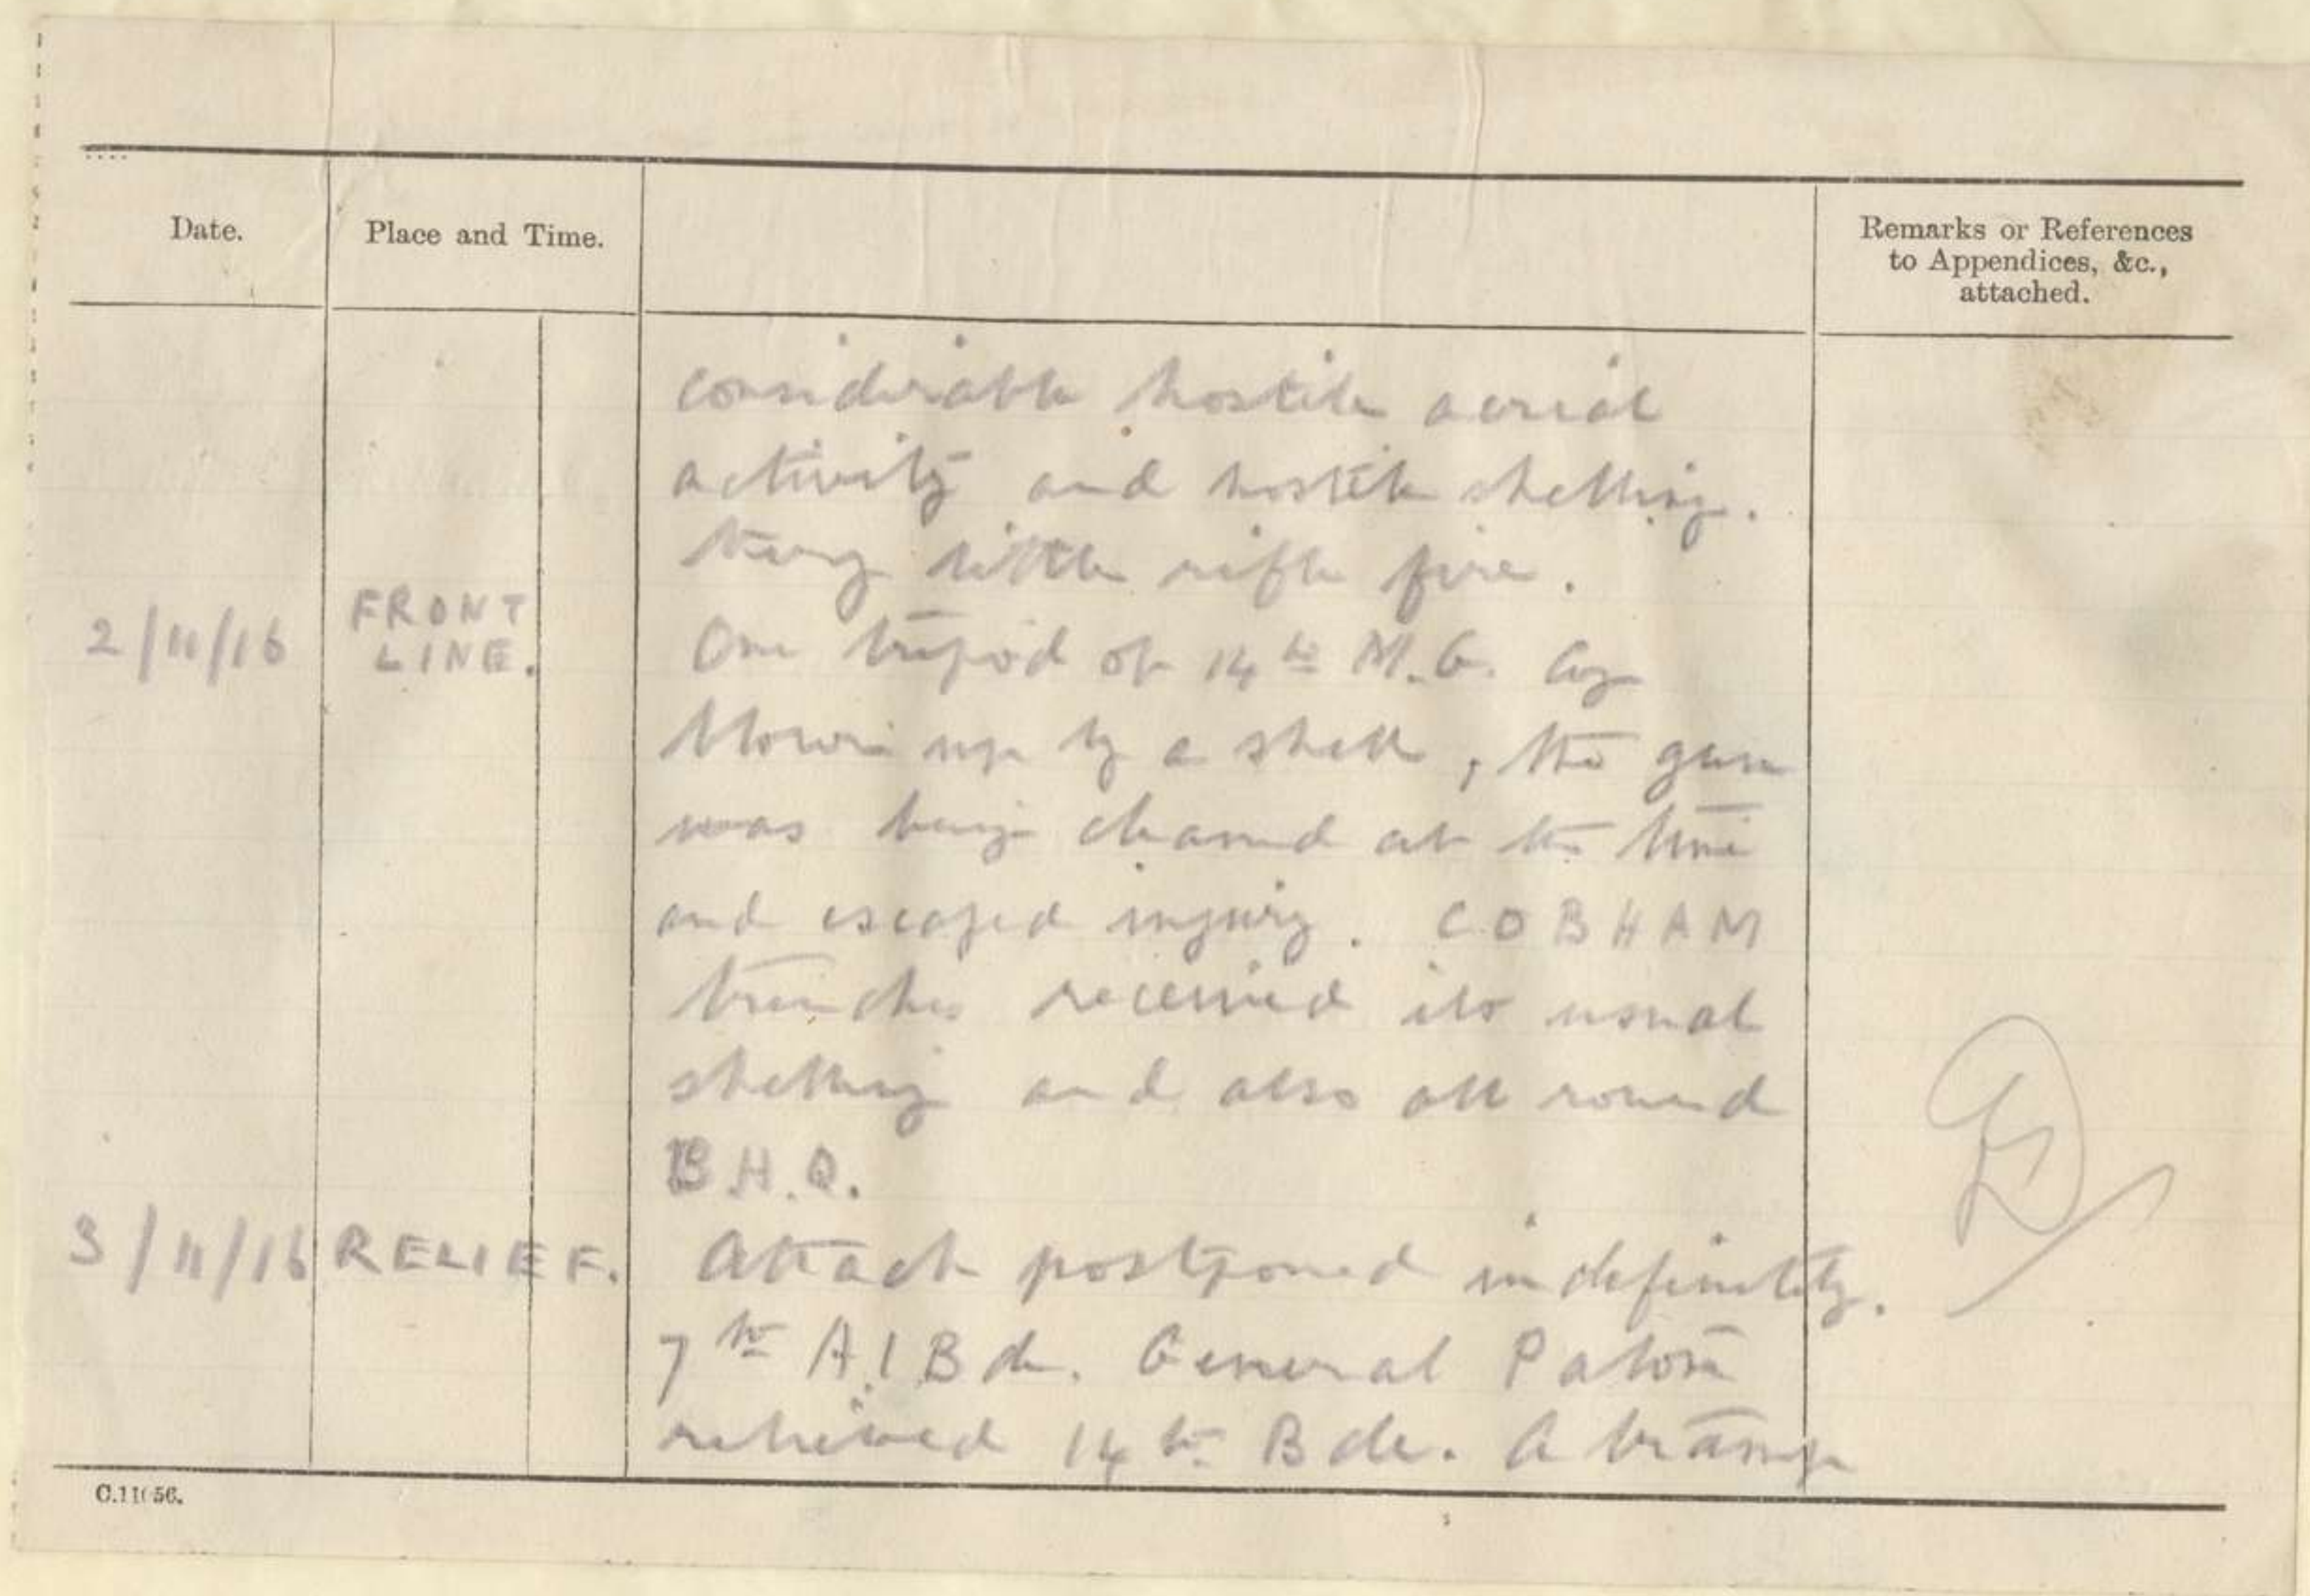 Date.
Place and Time.
Remarks or References
to Appendices, &c.,
attached.
considerable hostile aerial
activity and hostile shelling.
Very little rifle fire.
2/11/16 FRONT LINE. One tripod of 14th M.G. Coy
blown up by a shell, the gun
was being cleaned at the time
and escaped injury. COBHAM
trenches received its usual
shelling and also all round
B.H.Q.
3/11/16 RELIEF. Attack postponed indefinitely.
7th A.I.Bde. General Paton
relieved 14th Bde. A tramp
C.11056.